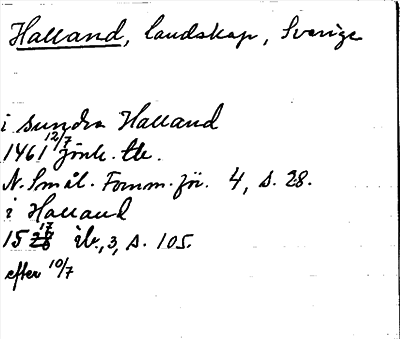 Halland, landskap, Sverige
i sundra Halland
1461 12/7 Jönk. tb.
N. Smål. Fornm. för. 4, s. 28.
i Halland
15 17 ib., 3, s. 105.
efter 10/7